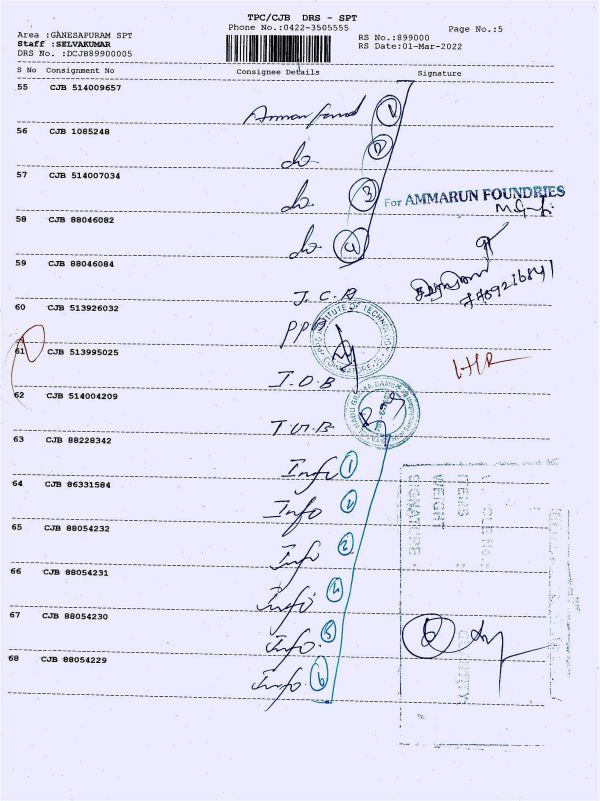 TPC/CJB DRS - SPT
Phone No.:0422-3505555
Page No.:5
Area :GANESAPURAM SPT
Staff :SELVAKUMAR
DRS No. :DCJB89900005
RS No.:899000
RS Date:01-Mar-2022
S No Consignment No Consignee Details Signature
55 CJB 514009657
Amman found 1
56 CJB 1085248
do 2
57 CJB 514007034
do 3
For AMMARUN FOUNDRIES
58 CJB 88046082
do 4
59 CJB 88046084
J.C.B
60 CJB 513926032
PPG
INSTITUTE OF TECHNOLOGY
61 CJB 513995025
I.O.B
62 CJB 514004209
T.G.B
TAMIL NADU GRAMA BANK
63 CJB 88228342
Info 1
64 CJB 86331584
Info 2
65 CJB 88054232
Info 3
66 CJB 88054231
Info 4
67 CJB 88054230
Info 5
68 CJB 88054229
Info 6
WEIGHT
ITEMS :
SIGNATURE :
6